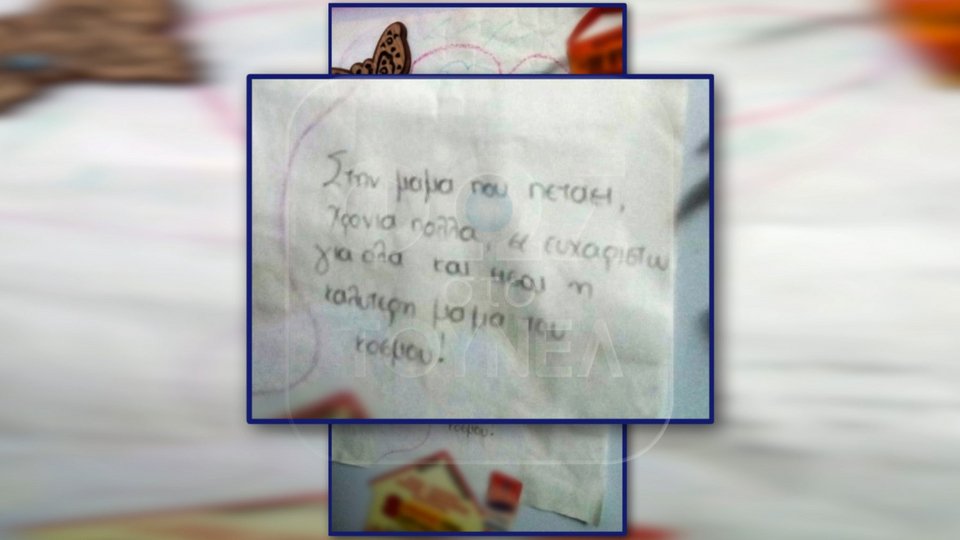 Στην μαμα που πεταει,
χρονια πολλα, σε ευχαριστω
για ολα και εισαι η
καλυτερη μαμα του
κοσμου!
ΦΩΣ
στο
ΤΟΥΝΕΛ
κοσμου.